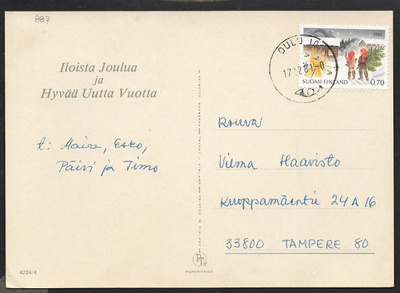 887
Iloista Joulua
ja
Hyvää Uutta Vuotta
t: Maire, Esko,
Päivi ja Timo
4224/4
OULU 10
17.12.81-0
401
SUOMI FINLAND 0,70
Rouva
Vilma Haavisto
Kuoppamäentie 24 A 16
33800 TAMPERE 80